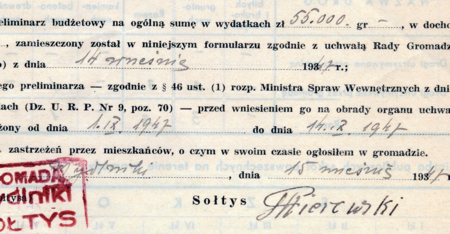 eliminarz budżetowy na ogólną sumę w wydatkach zł 55.000. gr –, w docho
, zamieszczony został w niniejszym formularzu zgodnie z uchwałą Rady Gromadz
o) z dnia 14 września 1947 r.;
ego preliminarza — zgodnie z § 46 ust. (1) rozp. Ministra Spraw Wewnętrznych z dni
ach (Dz. U. R. P. Nr 9, poz. 70) — przed wniesieniem go na obrady organu uchwa
żony od dnia 1.IX.1947 do dnia 14.IX.1947
. zastrzeżeń przez mieszkańców, o czym w swoim czasie ogłosiłem w gromadzie.
, dnia 15 wrześniа 1947 r.
ROMADA
niki
OŁTYS
Sołtys